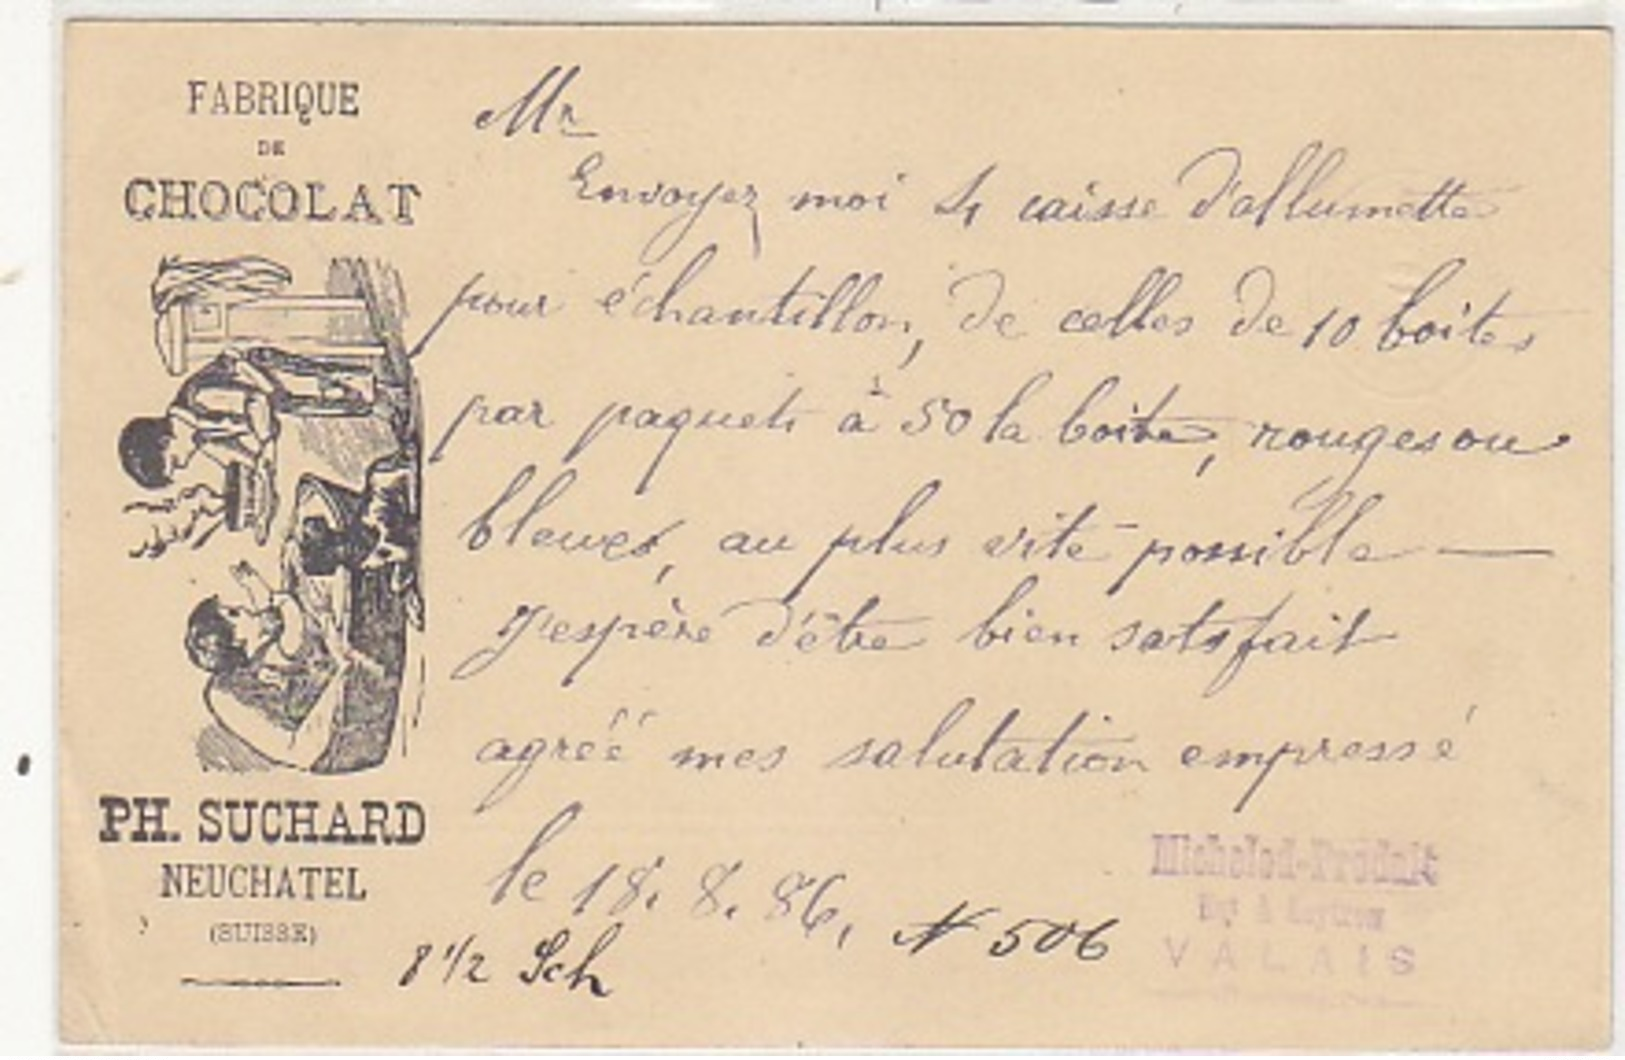 FABRIQUE
DE
CHOCOLAT
PH. SUCHARD
NEUCHATEL
(SUISSE)
Mr
Envoyez moi caisse d'allumette
pour échantillon, de celles de 10 boites
par paquets à 50 la boite, rouges ou
bleues, au plus vite possible —
J'espère d'être bien satisfait
agréé mes salutation empressé
le 18. 8. 86, N 506
8 1/2 Sch
VALAIS